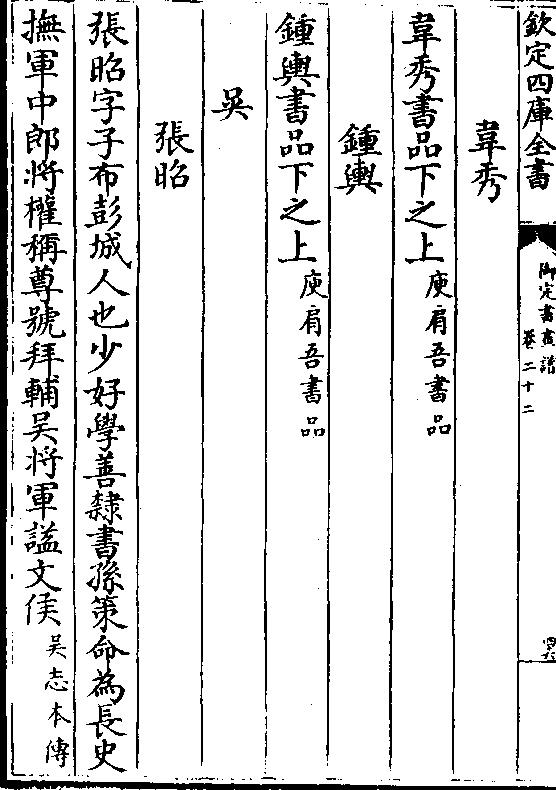 欽定四庫全書
御定書畫譜
卷二十二
四六
韋秀
韋秀書品下之上庾肩吾書品
鍾輿
鍾輿書品下之上庾肩吾書品
吳
張昭
張昭字子布彭城人也少好學善隸書孫策命為長史
撫軍中郎將權稱尊號拜輔吳將軍謚文侯吳志本傳